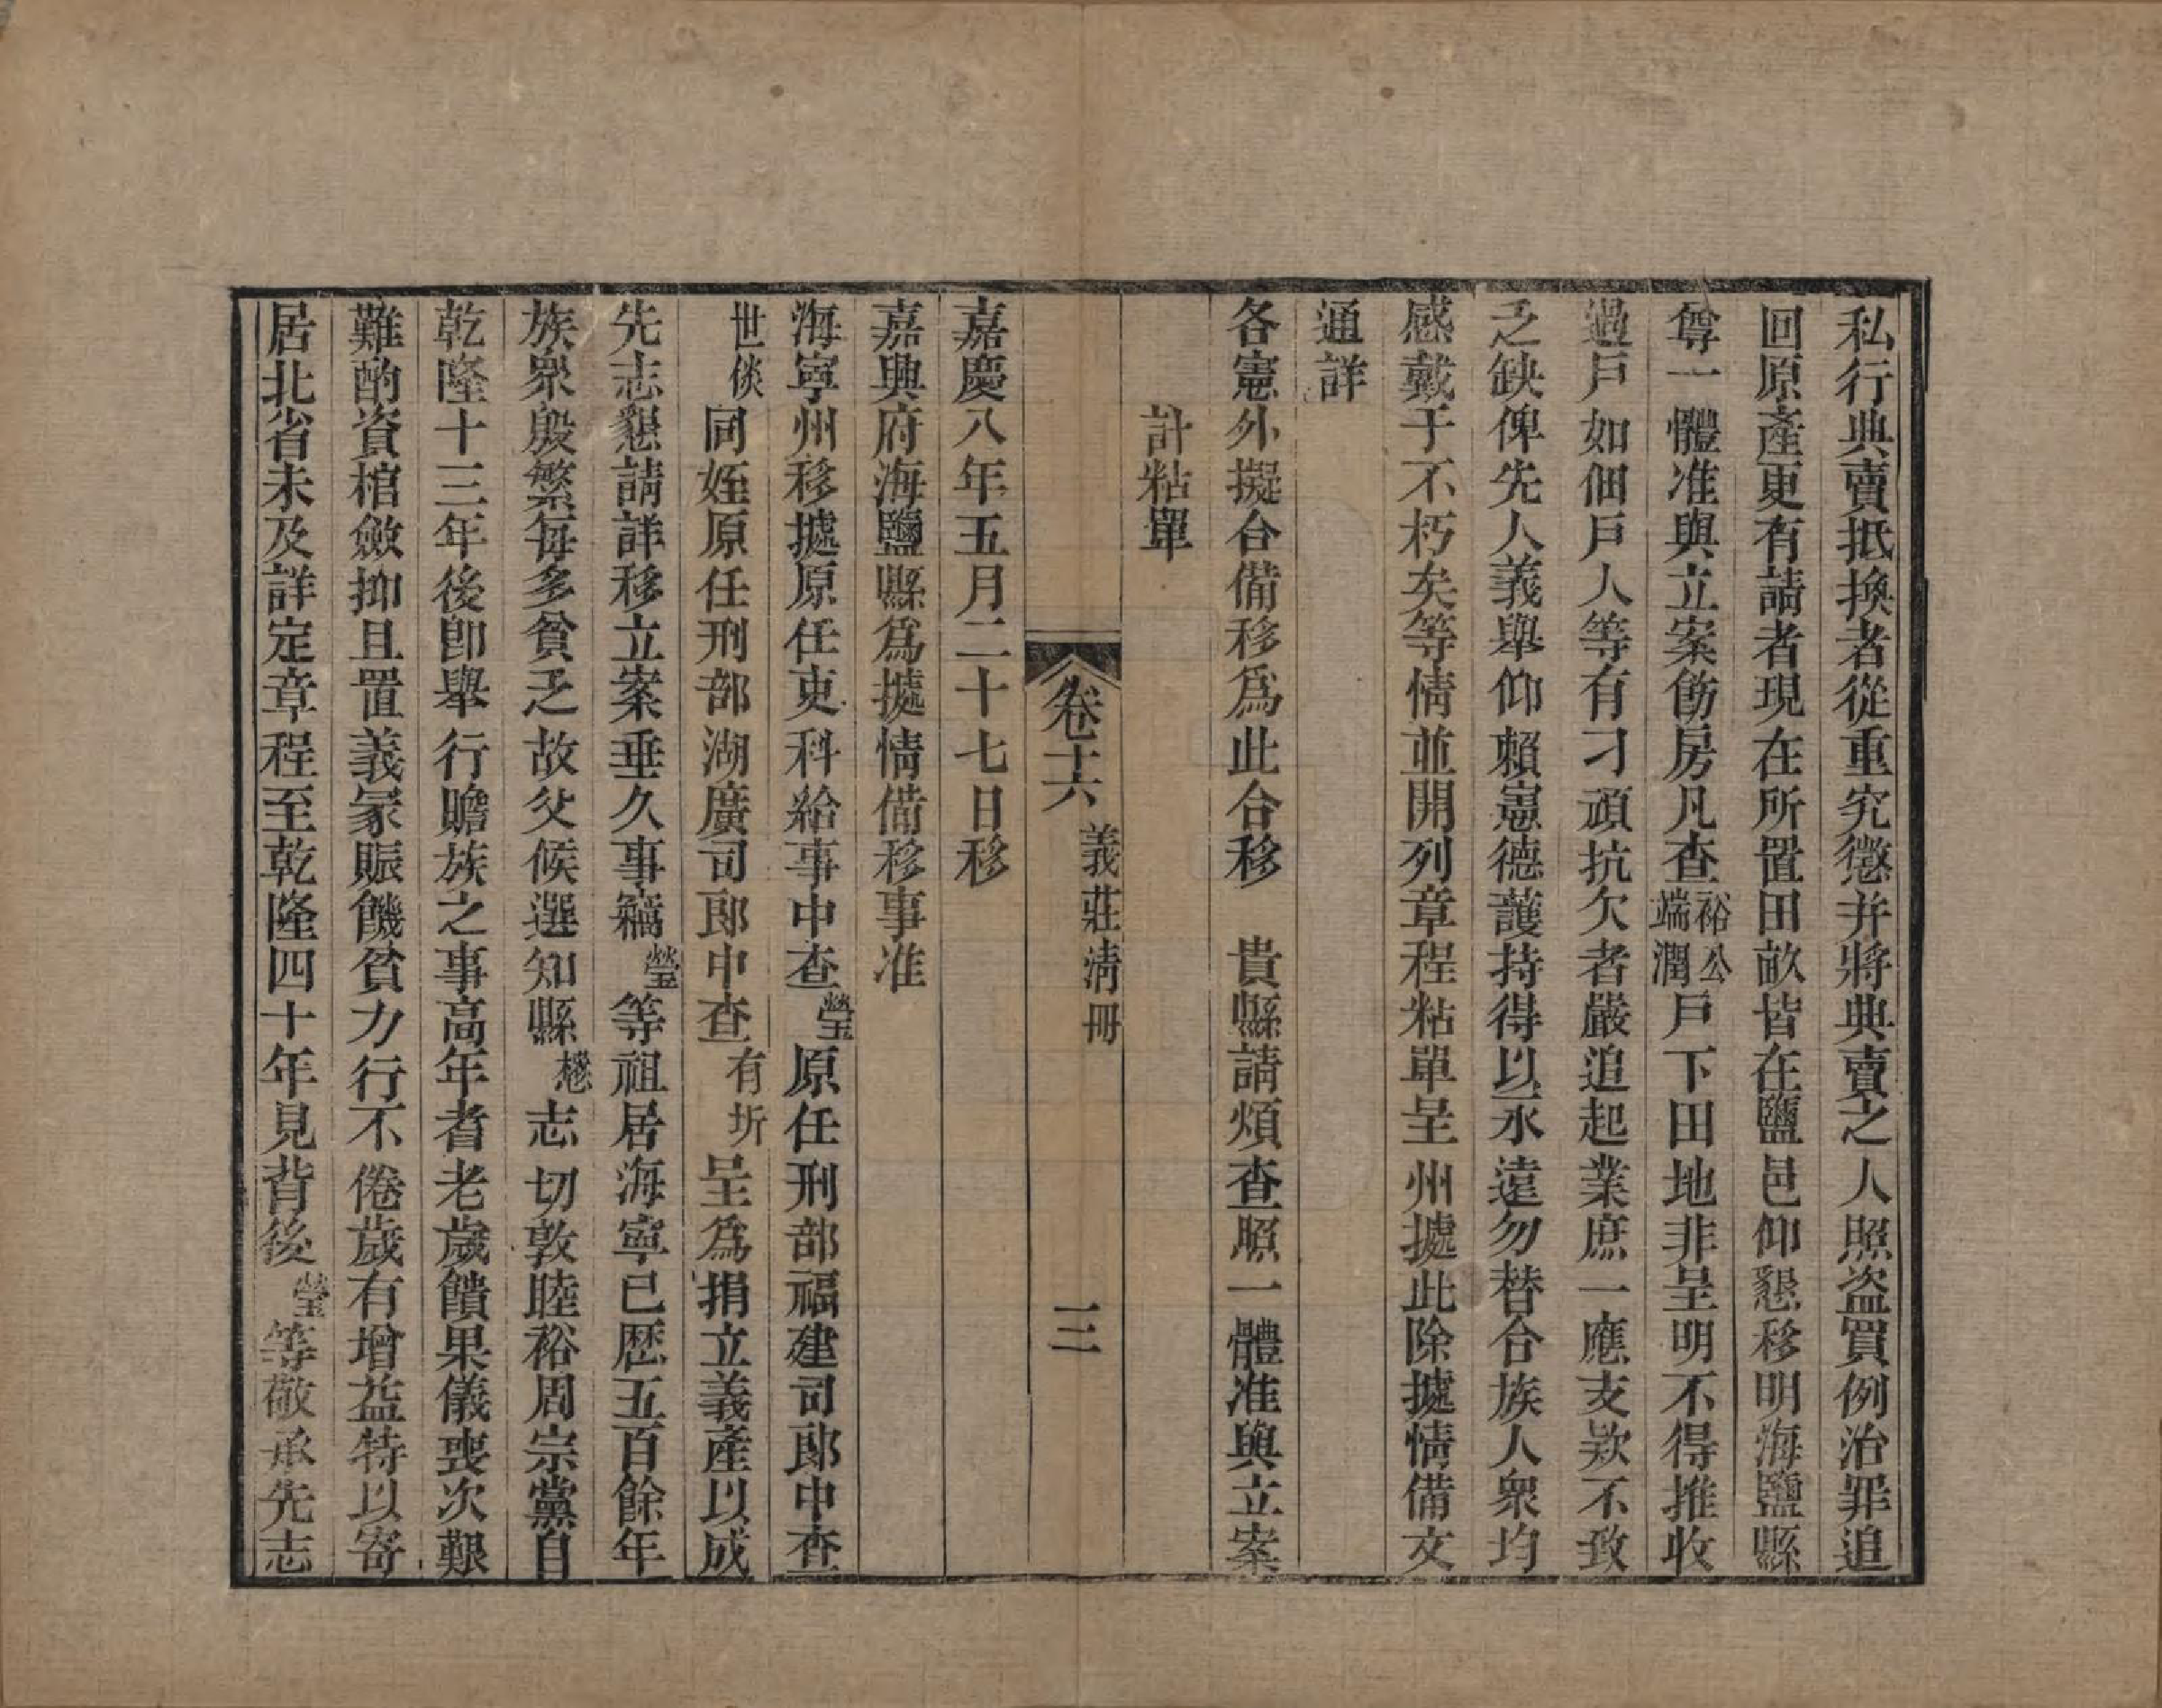 私行典賣抵換者從重究懲并將典賣之人照盜買例治罪追
回原產更有請者現在所置田畝皆在鹽邑仰懇移明海鹽縣
尊一體准與立案飭房凡查裕公端潤戶下田地非呈明不得推收
過戶如佃戶人等有刁頑抗欠者嚴追起業庶一應支欵不致
乏缺俾先人義舉仰賴憲德護持得以永遠勿替合族人衆均
感戴于不朽矣等情並開列章程粘單呈州據此除據情備文
通詳
各憲外擬合備移爲此合移　貴縣請煩查照一體准與立案
計粘單
卷十六　義莊清冊　三
嘉慶八年五月二十七日移
嘉興府海鹽縣爲據情備移事准
海寧州移據原任吏科給事中查瑩原任刑部福建司郎中查
世倓同姪原任刑部湖廣司郎中查有圻呈爲捐立義產以成
先志懇請詳移立案垂久事竊瑩等祖居海寧已歷五百餘年
族衆殷繁每多貧乏故父候選知縣懋志切敦睦裕周宗黨自
乾隆十三年後卽舉行贍族之事高年者老歲饋果儀喪次艱
難酌資棺斂抑且置義冢賑饑貧力行不倦歲有增益特以寄
居北省未及詳定章程至乾隆四十年見背後瑩等敬承先志